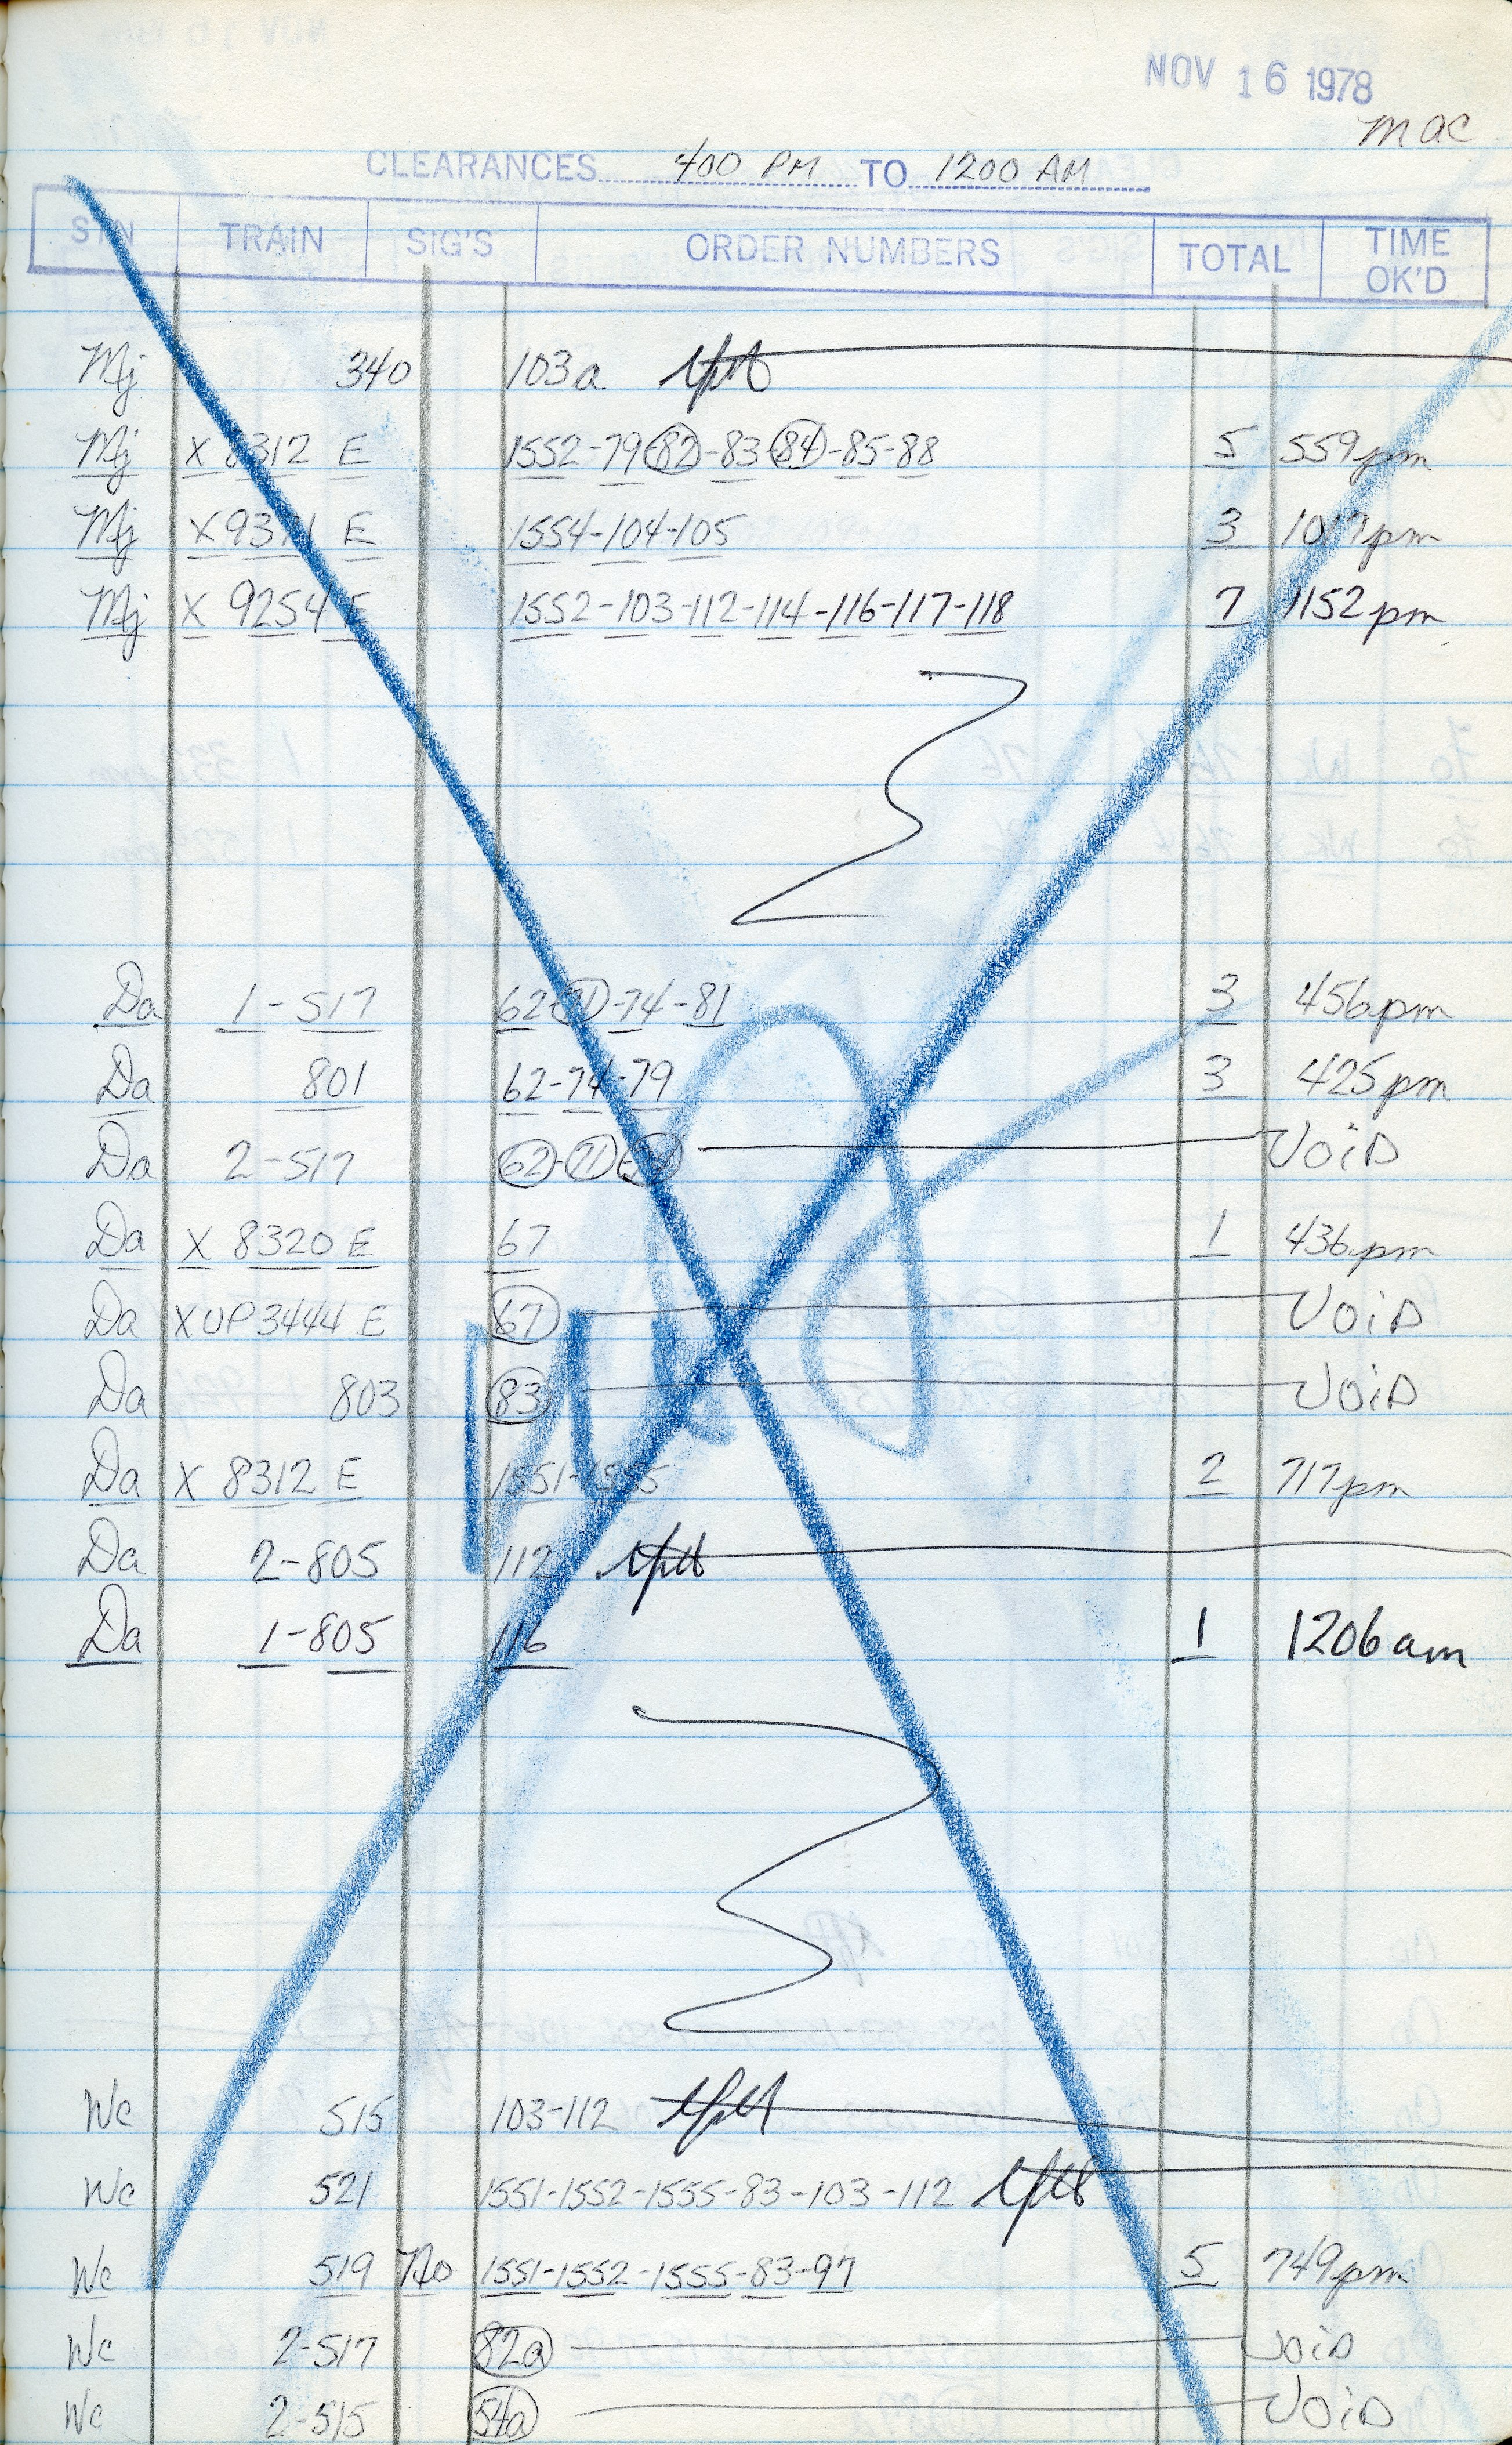 NOV 16 1978
mac
CLEARANCES 400 PM TO 1200 AM
STN TRAIN SIG'S ORDER NUMBERS TOTAL TIME OK'D
Mj 340 103a
Mj X 8312 E 1552-79-82-83-84-85-88 5 559pm
Mj X 9371 E 1554-104-105 3 1017pm
Mj X 9254 E 1552-103-112-114-116-117-118 7 1152pm
Da 1-517 62-71-74-81 3 456pm
Da 801 62-74-79 3 425pm
Da 2-517 62-71-74 VOID
Da X 8320 E 67 1 436pm
Da X UP 3444 E 67 VOID
Da 803 83 VOID
Da X 8312 E 1551-1555 2 717pm
Da 2-805 112
Da 1-805 116 1 1206am
Wc 515 103-112
Wc 521 1551-1552-1555-83-103-112
Wc 519 No 1551-1552-1555-83-97 5 749pm
Wc 2-517 82a VOID
Wc 2-515 54a VOID